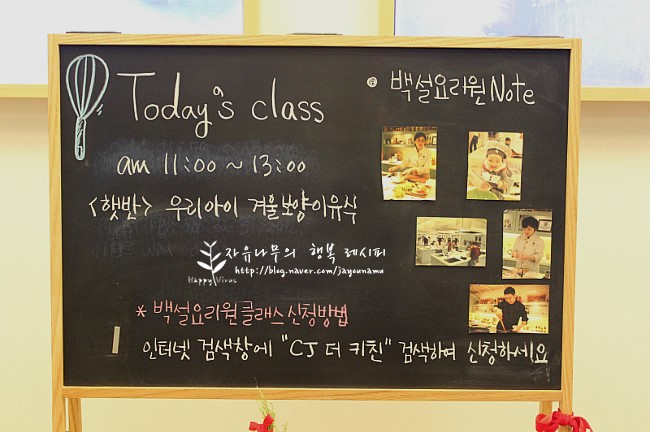 Today's class
백설요리원 Note
am 11:00 ~ 13:00
<햇반> 우리아이 겨울보양이유식
자유나무의 행복 레시피
http://blog.naver.com/jayounamu
Happy Virus
* 백설요리원클래스 신청방법
인터넷 검색창에 "CJ 더 키친" 검색하여 신청하세요